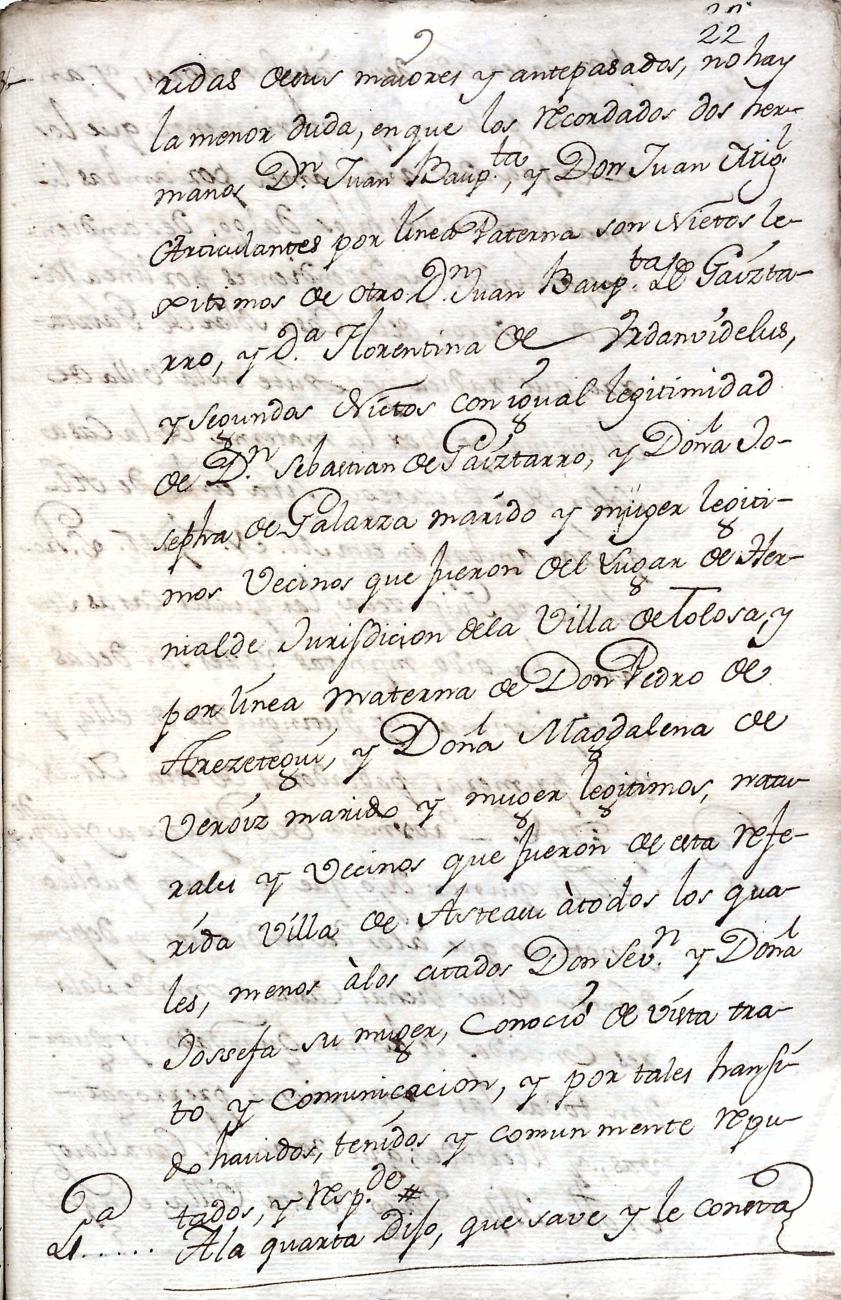 22
ridas de sus maiores y antepasados, no hay
la menor duda, en que los recordados dos her-
manos D.n Juan Baup.ta, y Don Juan Ygn.
Articulantes por línea Paterna son Nietos le-
xitimos de otro D.n Juan Baup.ta de Gaizta-
rro, y D.a Florentina de Vrdanvidelus,
y segundos Nietos con igual legitimidad
de D.n Sebastian de Gaiztarro, y Doña Jo-
sepha de Galarza marido y muger legiti-
mos Vecinos que fueron del Lugar de Her-
nialde Jurisdicion dela Villa de Tolosa, y
por línea materna de Don Pedro de
Arezetegui, y Doña Magdalena de
Veroiz marido y muger legitimos, natu-
rales y Vecinos que fueron de esta refe-
rida Villa de Asteasu à todos los qua-
les, menos à los citados Don Sev.n y Doña
Jossefa su muger, Conoció de vista tra-
to y Comunicacion, y por tales han si-
do havidos, tenidos y comunmente repu-
tados, y resp.de #
4.a ...... A la quarta Dijo, que save y le consta